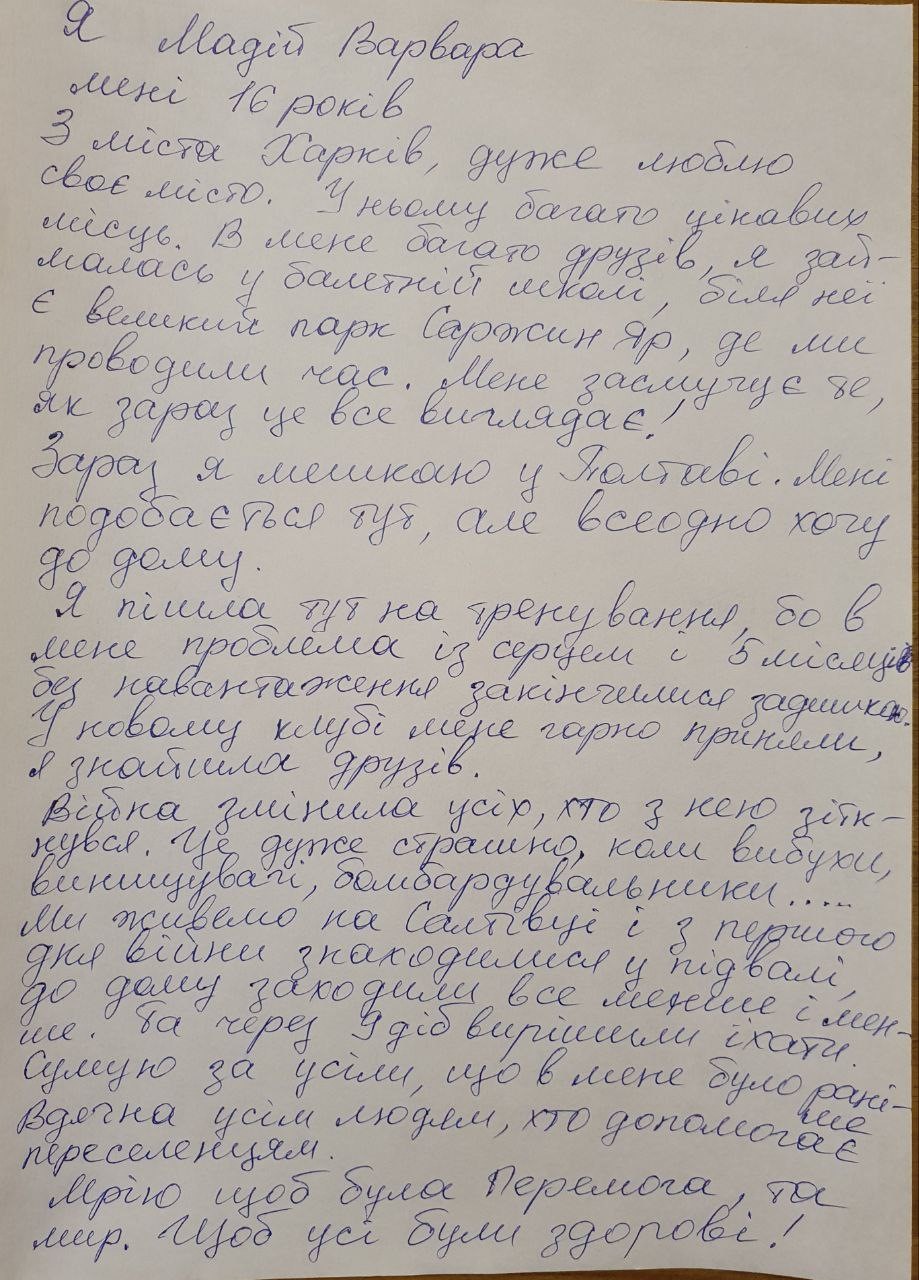 Я Мадій Варвара
мені 16 років
З міста Харків, дуже люблю
своє місто. У ньому багато цікавих
місць. В мене багато друзів, я зай-
малась у балетній школі, біля неї
є великий парк Саржин Яр, де ми
проводили час. Мене засмучує те,
як зараз це все виглядає!
Зараз я мешкаю у Полтаві. Мені
подобається тут, але всеодно хочу
до дому.
Я пішла тут на тренування, бо в
мене проблема із серцем і 5 місяців
без навантаження закінчилися задишкою.
У новому клубі мене гарно прийняли,
я знайшла друзів.
Війна змінила усіх, хто з нею зітк-
нувся. Це дуже страшно, коли вибухи,
винищувачі, бомбардувальники.....
Ми живемо на Салтівці і з першого
дня війни знаходилися у підвалі,
до дому заходили все менше і мен-
ше. Та через 9 діб вирішили їхати.
Сумую за усім, що в мене було рані-
ше
Вдячна усім людям, хто допомагає
переселенцям.
Мрію щоб була Перемога, та
мир. Щоб усі були здорові!